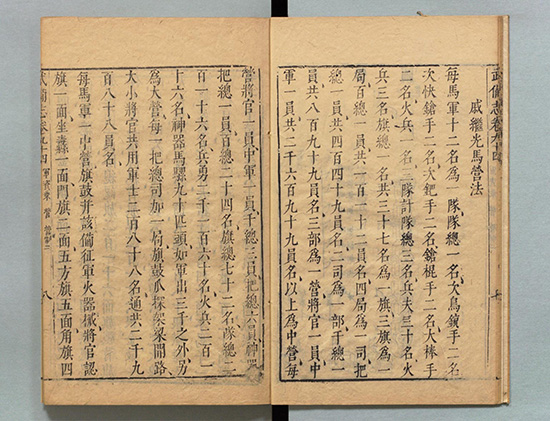 武備志卷九十四
戚繼光馬營法
每馬軍十二名為一隊隊總一名次鳥銃手二名
次快鎗手二名次鈀手二名鎗棍手二名大棒手
二名火兵一名三隊計隊總三名兵夫三十名火
兵三名旗總一名共三十七名為一旗三旗為一
局百總一員共一百一十二員名四局為一司把
總一員共四百四十九員名二司為一部千總一
員共八百九十九員名三部為一營將官一員中
軍一員共二千六百九十九員名以上為中營每
營將官一員中軍一員千總三員把總六員
把總一員百總二十四名旗總七十二名隊總二
百一十六名兵勇二千一百六十名火兵二百一
十六名神器馬騾九十匹頭如軍出三千之外另
為大營每一把總司加一局旗鼓爪探架梁開路
大小將官共用軍士二百八十八名通共二千九
百八十八員名
每馬軍一中營旗鼓并該備征軍火器械將官認
旗一面坐纛一面門旗二面五方旗五面角旗四
武備志卷九十四
八